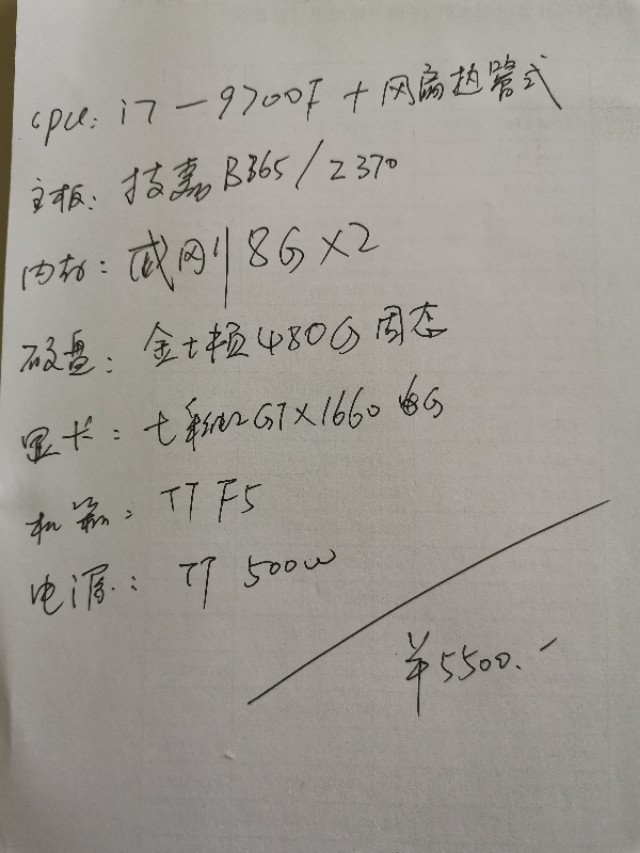 cpu: i7-9700F + 风扇热管式
主板: 技嘉 B365/Z370
内存: 威刚 8G×2
硬盘: 金士顿 480G 固态
显卡: 七彩虹 GTX1660 6G
机箱: TT F5
电源: TT 500W
¥5500.-